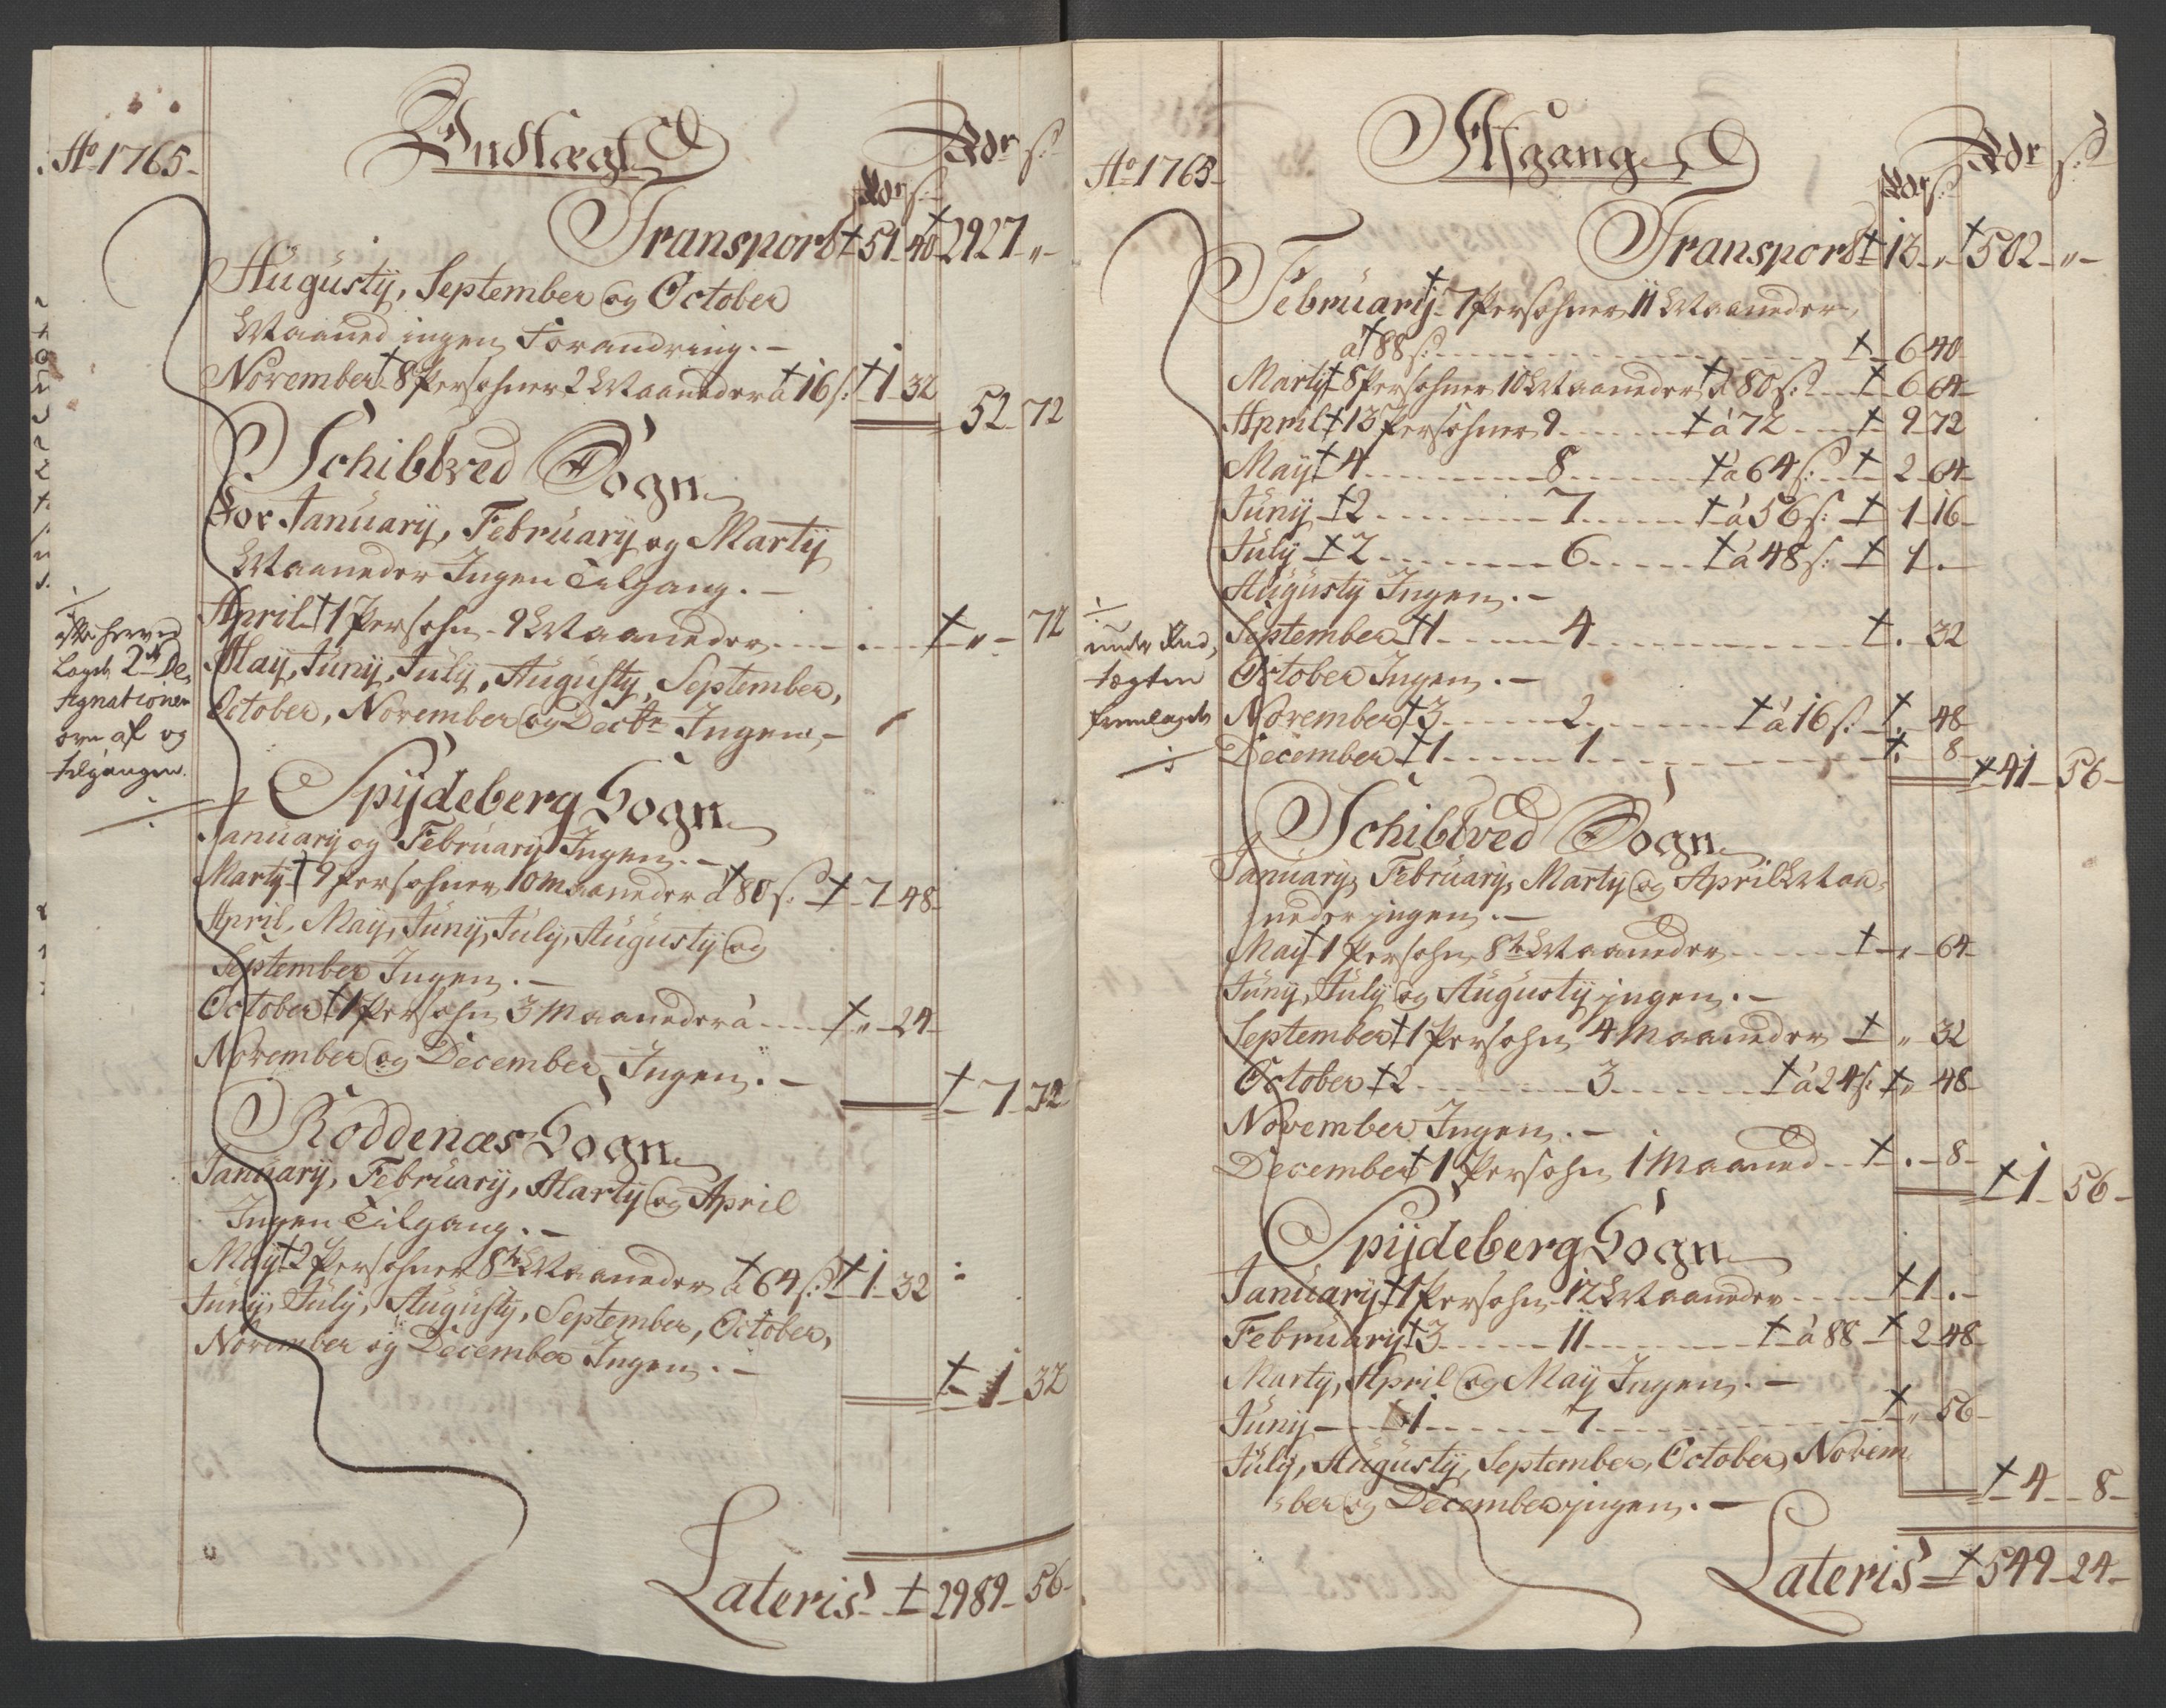 Ao 1765
Indtægt
Rdr s:
Rdr s:
Transport 51 40 2927 "
Augusty, September og October
Maaned ingen Forandring.
November 8 Persohner 2 Maaneder a 16 s: 1 32
52 72
Schibtved Sogn
For January, February og Marty
Maaneder Ingen Tilgang.
April 1 Persohn 9 Maaneder " 72
May, Juny, July, Augusty, September,
October, November og Decbr Ingen
herved
2de De-
signationer
over af og
tilgangen.
Spydeberg Sogn
January og February Ingen.
Marty 9 Persohner 10 Maaneder a 80 s: 7 48
April, May, Juny, July, Augusty og
September Ingen.
October 1 Persohn 3 Maaneder à " 24
November og December Ingen.
7 72
Röddenæs Sogn
January, February, Marty og April
Ingen Tilgang.
May 2 Persohner 8te Maaneder à 64 s: 1 32
Juny, July, Augusty, September, October,
November og December Ingen.
1 32
Lateris 2989 56
Ao 1765
Afgang
Rdr s:
Rdr s:
Transport 13 " 502 "
February 7 Persohner 11 Maaneder
a 88 s: 6 40
Marty 8 Persohner 10 Maaneder à 80 s: 6 64
April 13 Persohner 9 à 72 9 72
May 4 8 à 64 s: 2 64
Juny 2 7 à 56 s: 1 16
July 2 6 à 48 s: 1 .
Augusty Ingen.
September 1 4 . 32
October Ingen.
November 3 2 à 16 s: . 48
December 1 1 . 8
41 56
under Ind-
tægten
fremlagdt
Schibtved Sogn
January, February, Marty og April Maa-
neder ingen.
May 1 Persohn 8te Maaneder " 64
Juny, July og Augusty ingen.
September 1 Persohn 4 Maaneder " 32
October 2 3 à 24 s: " 48
November Ingen.
December 1 Persohn 1 Maaned . 8
1 56
Spydeberg Sogn
January 1 Persohn 12 Maaneder 1 .
February 3 11 à 88 2 48
Marty, April og May Ingen.
Juny 1 7 " 56
July, Augusty, September, October, Novem-
ber og December ingen.
4 8
Lateris 549 24